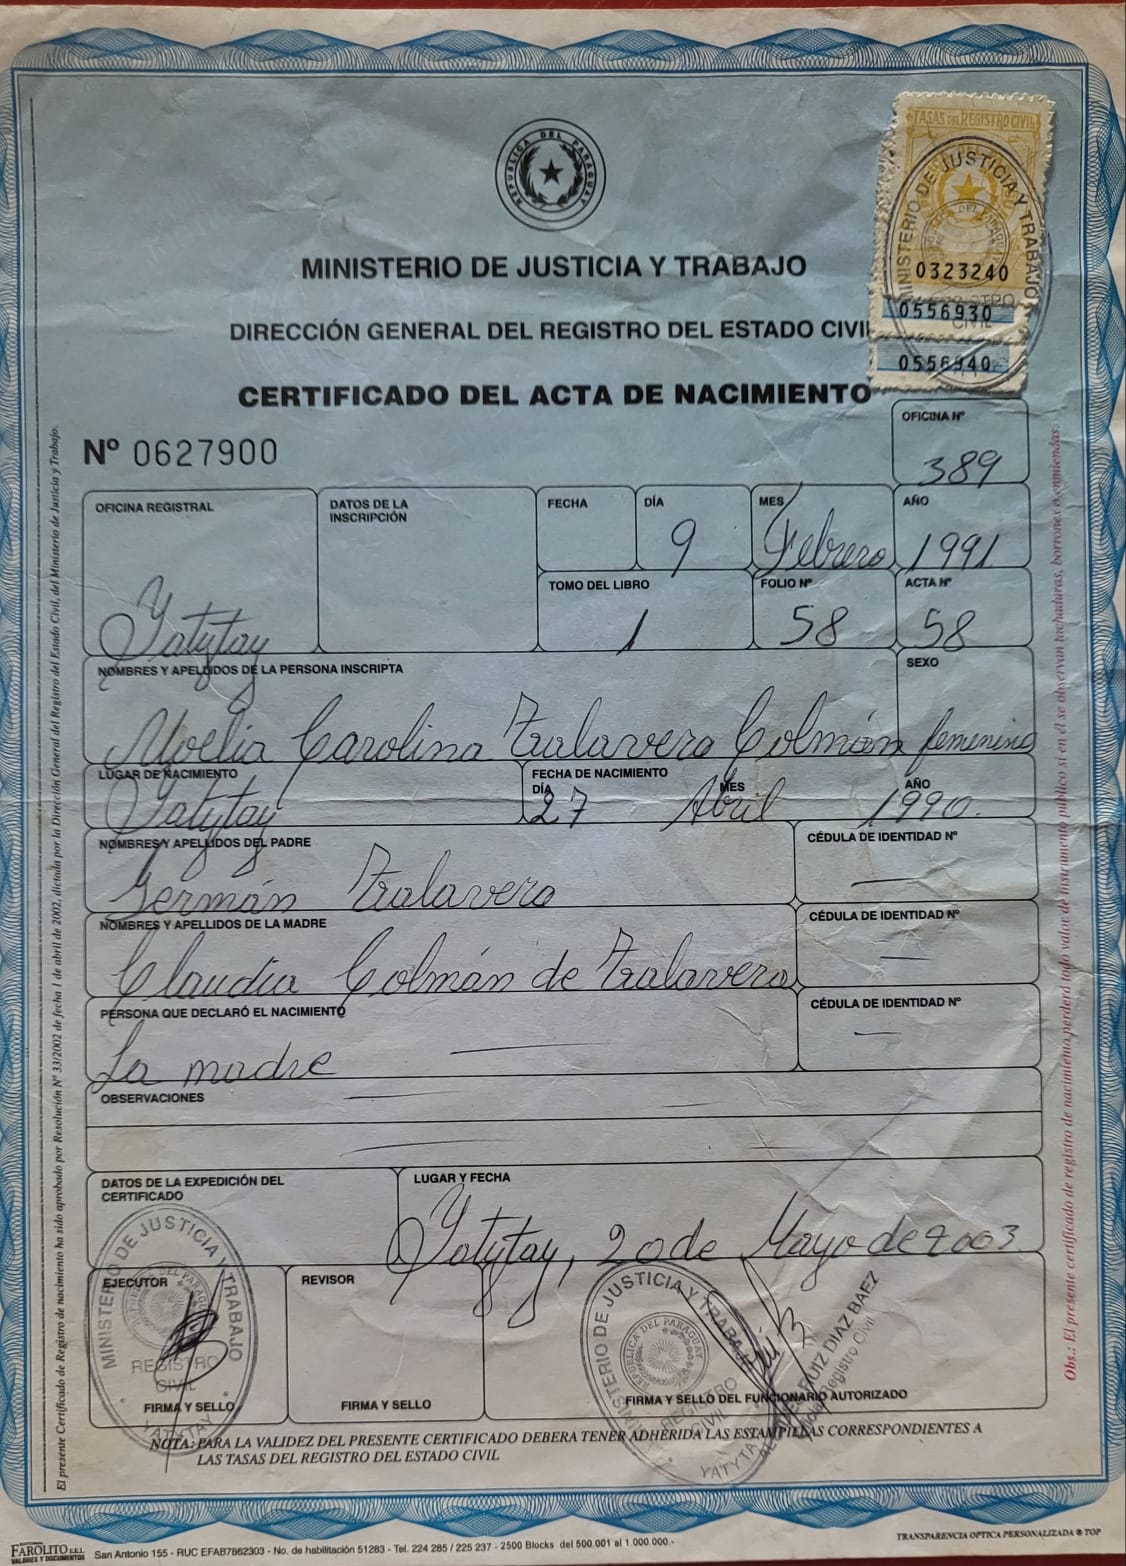 REPUBLICA DEL PARAGUAY
TASAS DEL REGISTRO CIVIL
MINISTERIO DE JUSTICIA Y TRABAJO
0323240
REGISTRO CIVIL
0556930
0556940
MINISTERIO DE JUSTICIA Y TRABAJO
DIRECCIÓN GENERAL DEL REGISTRO DEL ESTADO CIVIL
CERTIFICADO DEL ACTA DE NACIMIENTO
Nº 0627900
OFICINA Nº
389
OFICINA REGISTRAL
Yatytay
DATOS DE LA
INSCRIPCIÓN
FECHA DÍA MES AÑO
9 Febrero 1991
TOMO DEL LIBRO FOLIO Nº ACTA Nº
1 58 58
NOMBRES Y APELLIDOS DE LA PERSONA INSCRIPTA SEXO
Carolina Talavera Colmán femenino
LUGAR DE NACIMIENTO FECHA DE NACIMIENTO
DÍA MES AÑO
Yatytay 27 Abril 1990.
NOMBRES Y APELLIDOS DEL PADRE CÉDULA DE IDENTIDAD Nº
Germán Talavera —
NOMBRES Y APELLIDOS DE LA MADRE CÉDULA DE IDENTIDAD Nº
Claudia Colmán de Talavera —
PERSONA QUE DECLARÓ EL NACIMIENTO CÉDULA DE IDENTIDAD Nº
La madre — —
OBSERVACIONES
DATOS DE LA EXPEDICIÓN DEL
CERTIFICADO
LUGAR Y FECHA
Yatytay, 20 de Mayo de 2003.
EJECUTOR
REVISOR
MINISTERIO DE JUSTICIA Y TRABAJO
REGISTRO
CIVIL
YATYTAY
MINISTERIO DE JUSTICIA Y TRABAJO
REPUBLICA DEL PARAGUAY
REGISTRO
CIVIL
YATYTAY
RUIZ DIAZ BAEZ
Registro Civil
FIRMA Y SELLO
FIRMA Y SELLO
FIRMA Y SELLO DEL FUNCIONARIO AUTORIZADO
NOTA: PARA LA VALIDEZ DEL PRESENTE CERTIFICADO DEBERA TENER ADHERIDA LAS ESTAMPILLAS CORRESPONDIENTES A
LAS TASAS DEL REGISTRO DEL ESTADO CIVIL
El presente Certificado de Registro de nacimiento ha sido aprobado por Resolución Nº 33/2002 de fecha 1 de abril de 2002, dictada por la Dirección General del Registro del Estado Civil, del Ministerio de Justicia y Trabajo.
Obs.: El presente certificado de registro de nacimiento perderá todo valor de instrumento público si en él se observan tachaduras, borrones o enmiendas.
FAROLITO S.R.L.
VALORES Y DOCUMENTOS
San Antonio 155 - RUC EFAB7862303 - No. de habilitación 51283 - Tel. 224 285 / 225 237 - 2500 Blocks del 500.001 al 1.000.000.-
TRANSPARENCIA OPTICA PERSONALIZADA ® TOP